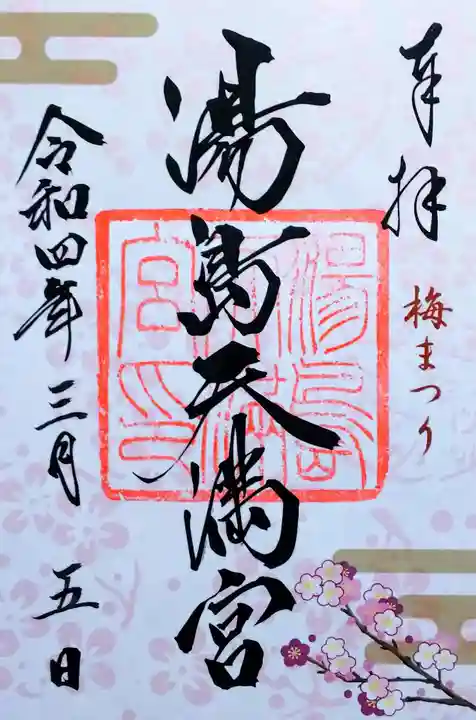 奉拝
梅まつり
湯島天満宮
湯島
天満
宮印
令和四年三月五日